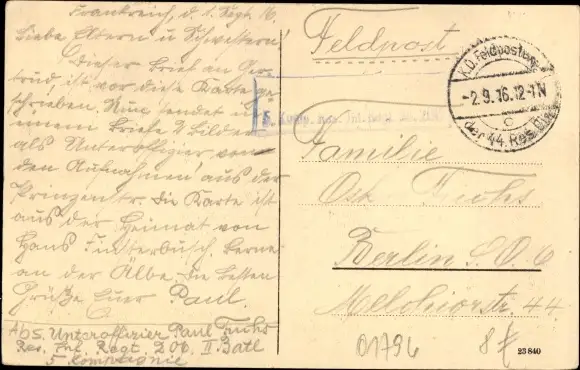 Frankreich, d. 1. Sept. 16.
Liebe Eltern u Schwestern!
Dieser Brief an Ger-
trud, ist vor die Karte ge
schrieben. Nun sendet
einem Briefe 2 Bilder
als Unteroffizier von
den Aufnahmen aus der
Prinzenstr. Die Karte ist
aus der Heimat von
Hans Finsterbusch. Lerne
an der Älbe. Die besten
Grüße Euer Paul.
Abs. Unteroffizier Paul Fuchs
Res. Inf. Regt. 206. II Batl
5 Kompagnie
Feldpost
K.D. Feldpostexp.
-2.9.16.12-1N
c
der 44. Res. Div.
5. Komp. Res. Inf. Regt. No. 206
Familie
Osk Fuchs
Berlin S.O. 6
Melchiorstr. 44
01796
8 €
23840